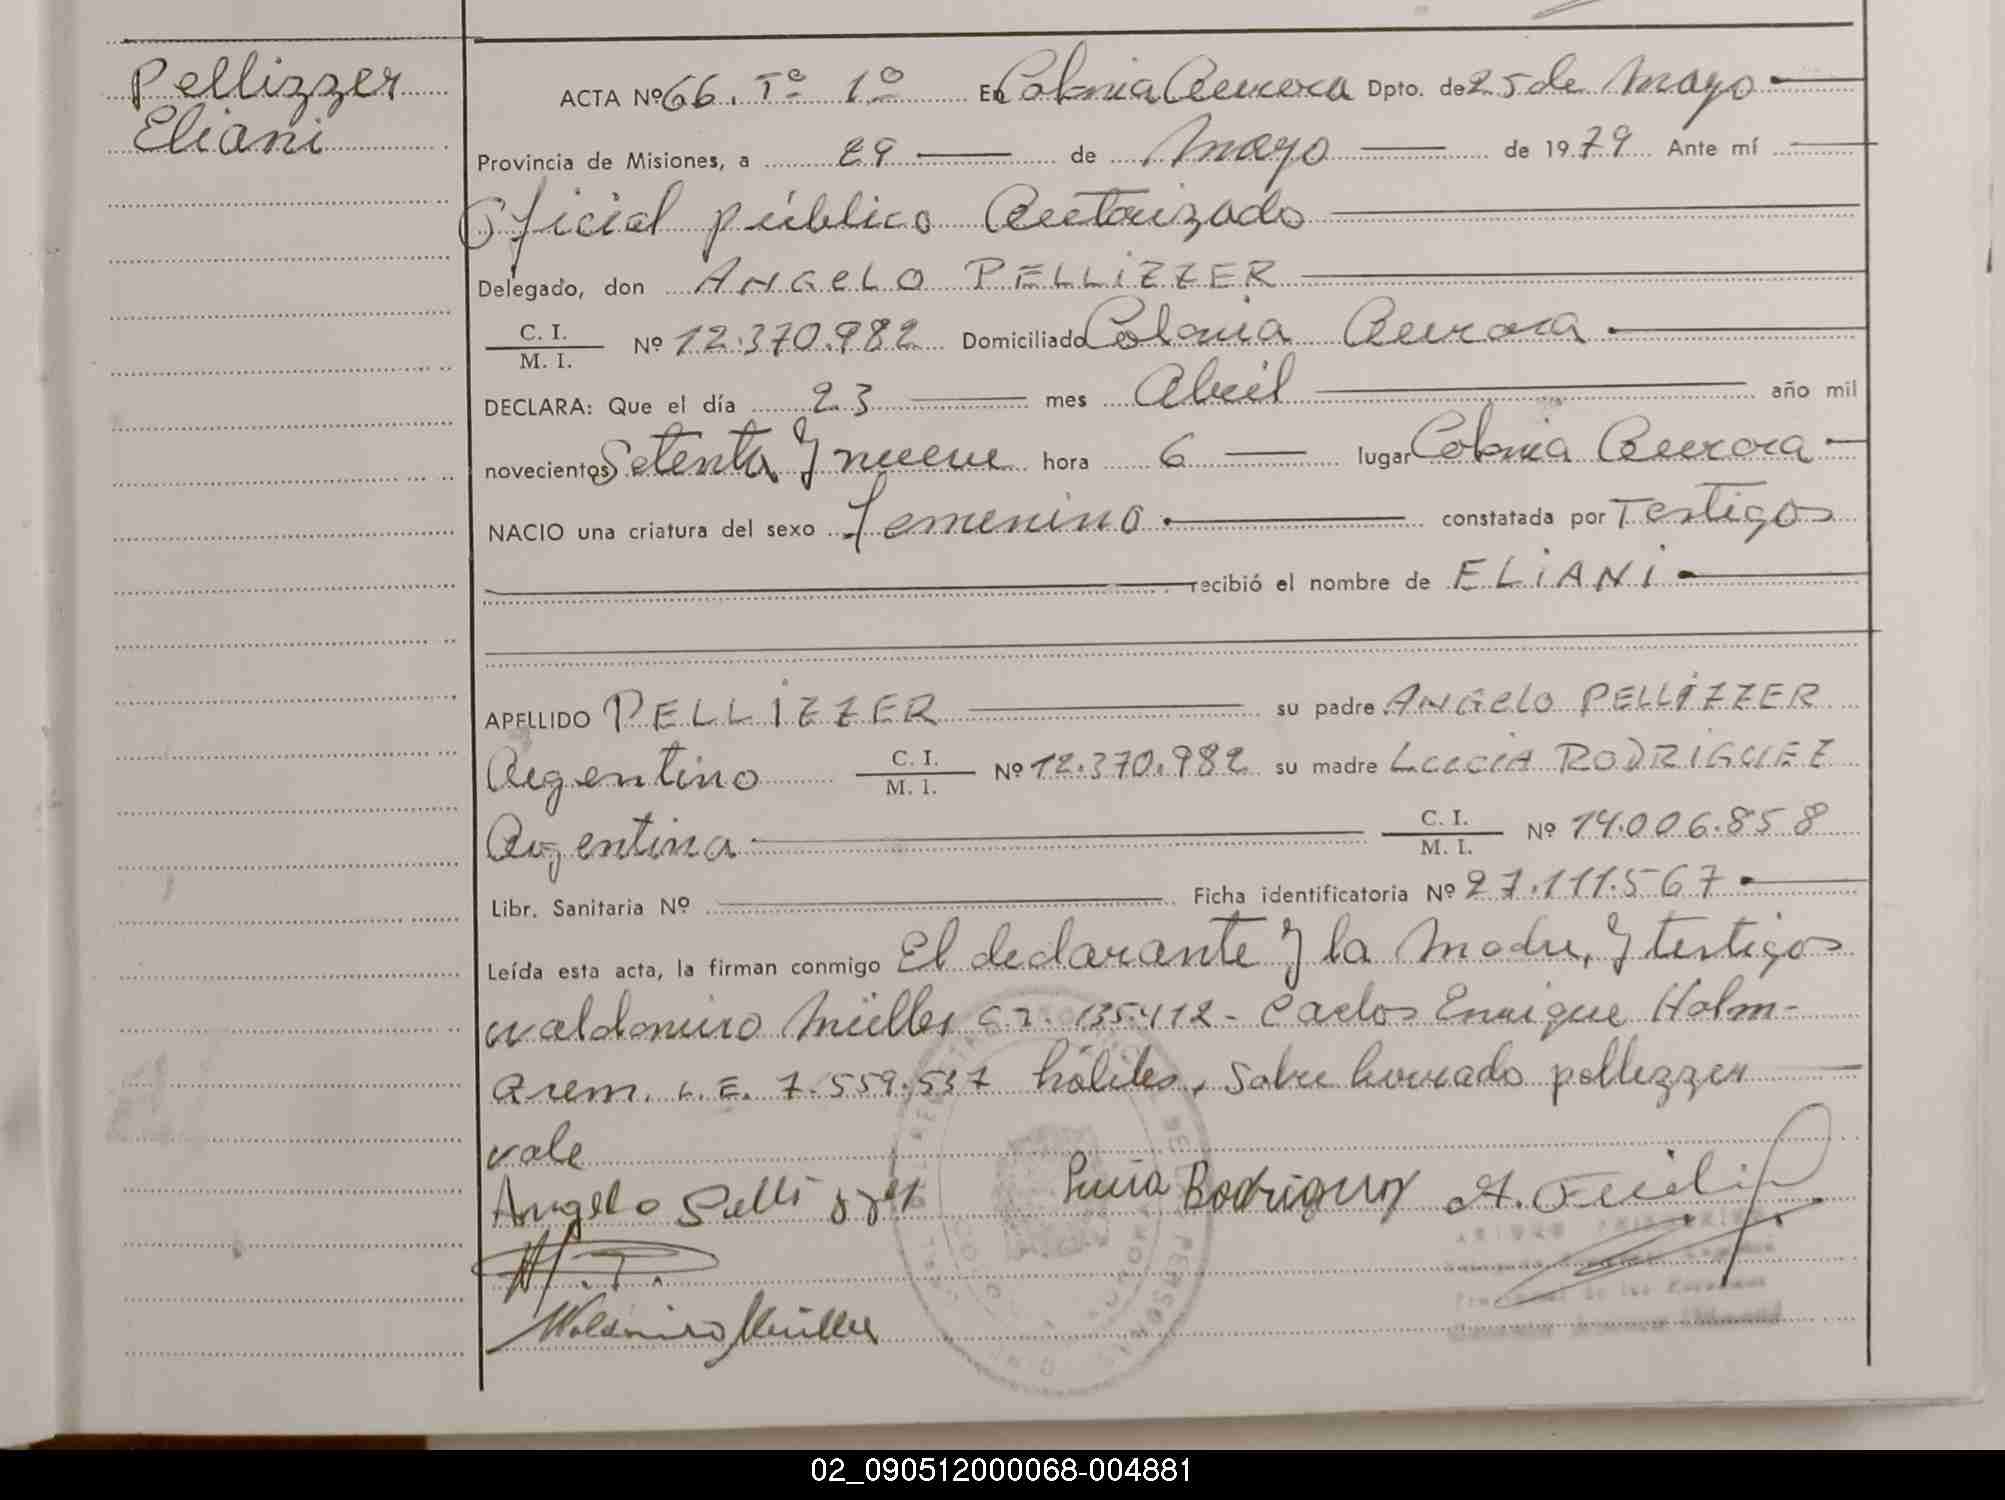 Pellizzer
Eliani
ACTA Nº 66. Tº 1º En Colonia Aurora Dpto. de 25 de Mayo
Provincia de Misiones, a 29 de Mayo de 1979 Ante mí
Oficial público Autorizado
Delegado, don ANGELO PELLIZZER
C. I. / M. I. Nº 12.370.982 Domiciliado Colonia Aurora
DECLARA: Que el día 23 mes Abril año mil
novecientos Setenta y nueve hora 6 lugar Colonia Aurora
NACIO una criatura del sexo femenino constatada por Testigos
recibió el nombre de ELIANI
APELLIDO PELLIZZER su padre ANGELO PELLIZZER
Argentino C. I. / M. I. Nº 12.370.982 su madre LUCIA RODRIGUEZ
Argentina C. I. / M. I. Nº 14.006.858
Libr. Sanitaria Nº Ficha identificatoria Nº 27.111.567
Leída esta acta, la firman conmigo El declarante y la Madre, y testigos
Waldomiro Müller C.I. 135.412 - Carlos Enrique Holm-
Arem. L.E. 7.559.537 hábiles, Sobre borrado pellizzer
vale
Angelo Pellizzer Lucia Rodriguez
Waldomiro Müller
02_090512000068-004881